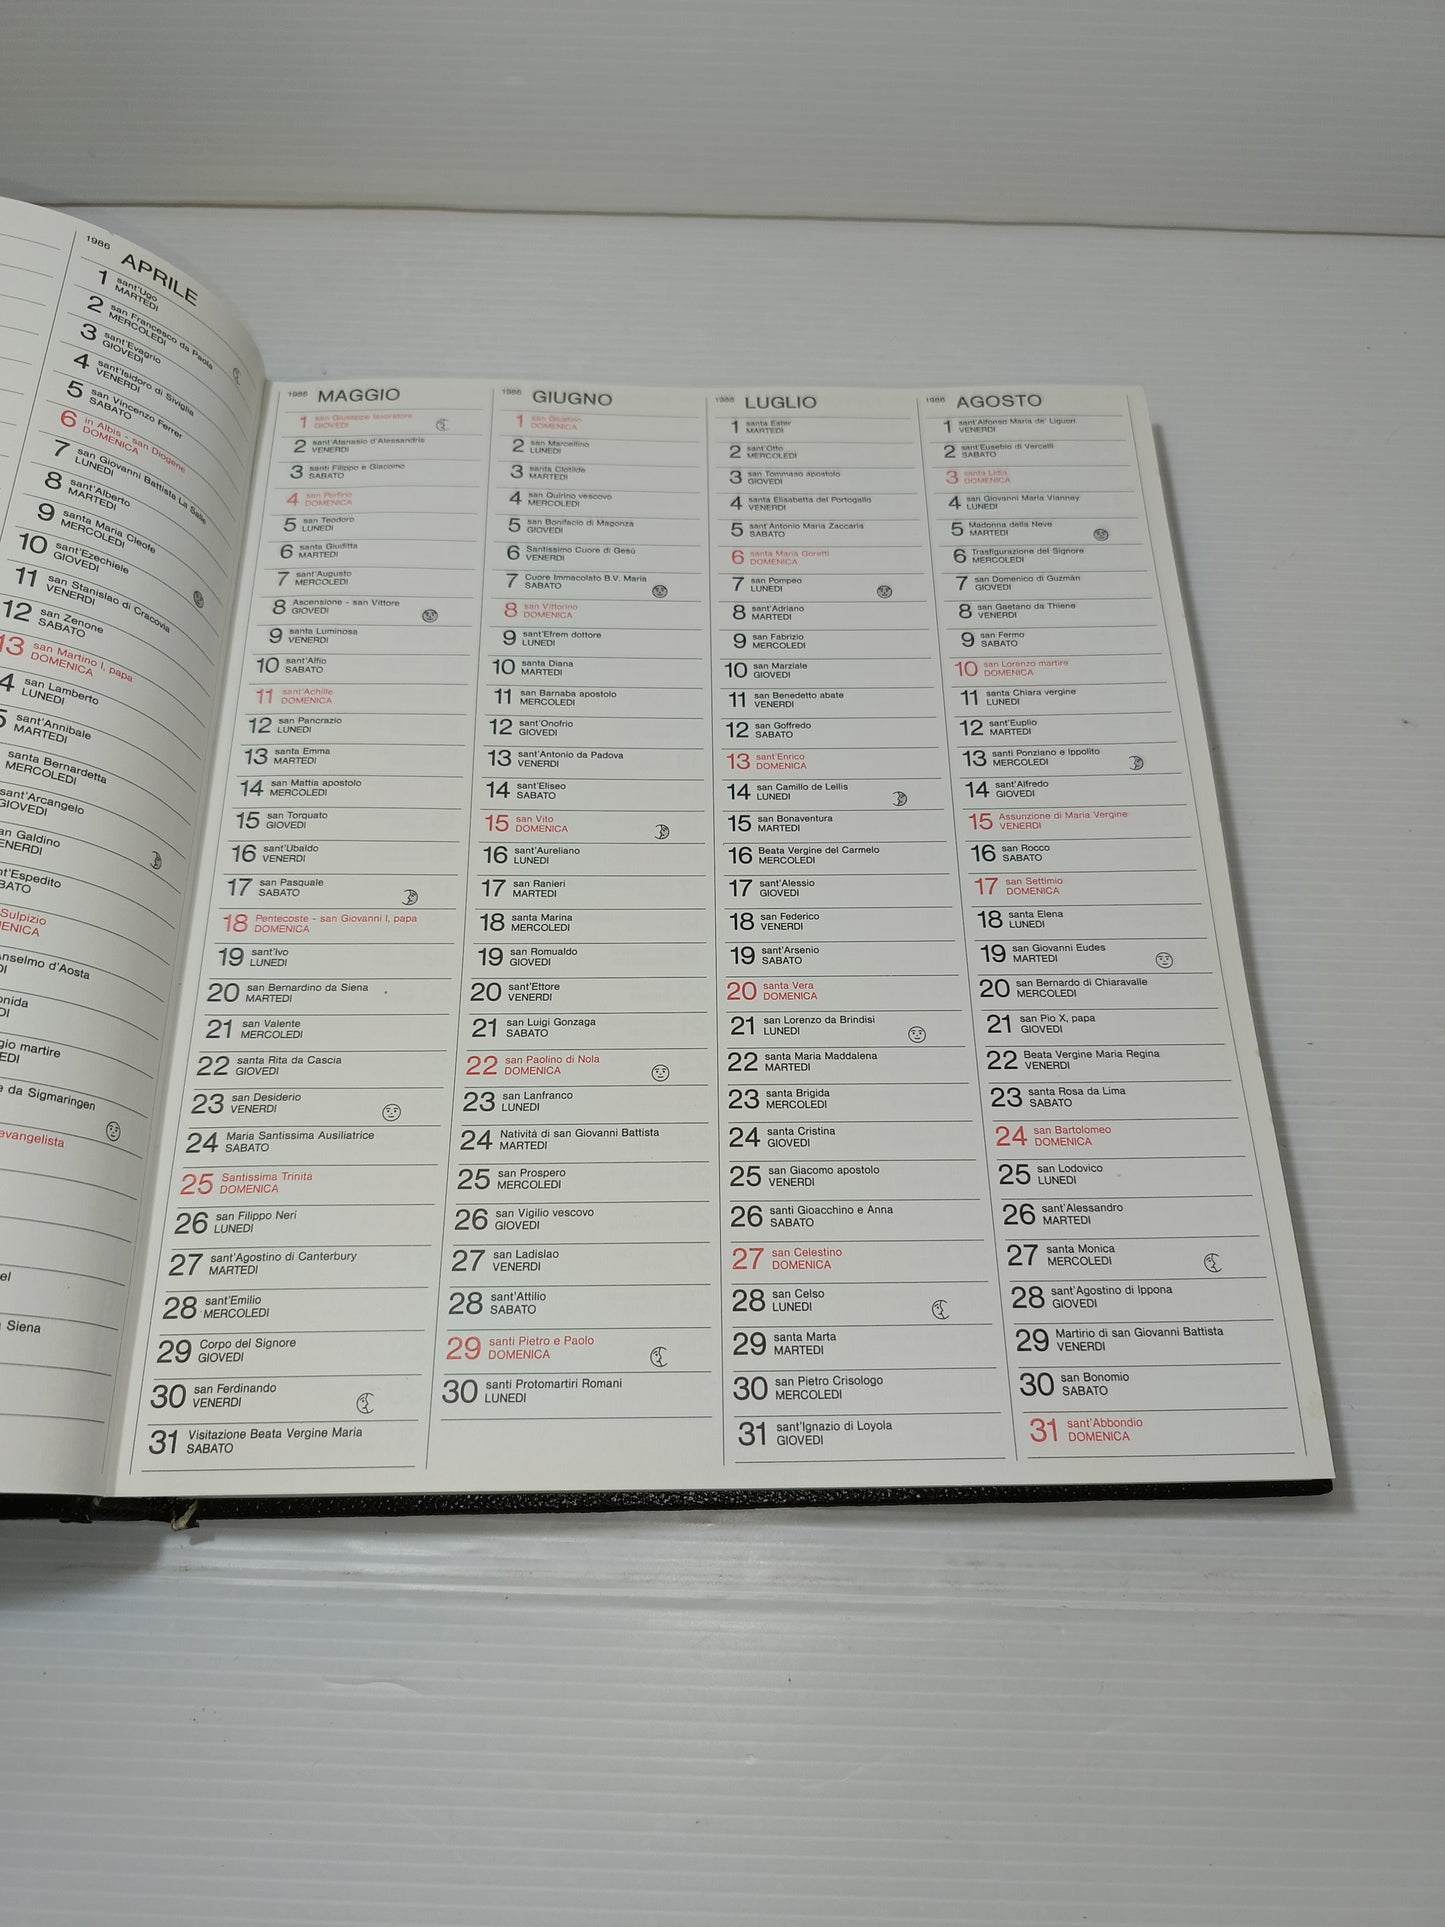 1986 APRILE
1 sant'Ugo
MARTEDI
2 san Francesco da Paola
MERCOLEDI
3 sant'Evagrio
GIOVEDI
4 sant'Isidoro di Siviglia
VENERDI
5 san Vincenzo Ferrer
SABATO
6 in Albis - san Diogene
DOMENICA
7 san Giovanni Battista La Salle
LUNEDI
8 sant'Alberto
MARTEDI
9 santa Maria Cleofe
MERCOLEDI
10 sant'Ezechiele
GIOVEDI
11 san Stanislao di Cracovia
VENERDI
12 san Zenone
SABATO
13 san Martino I, papa
DOMENICA
4 san Lamberto
LUNEDI
5 sant'Annibale
MARTEDI
santa Bernardetta
MERCOLEDI
sant'Arcangelo
GIOVEDI
an Galdino
ENERDI
nt'Espedito
BATO
Sulpizio
ENICA
nselmo d'Aosta
DI
onida
DI
gio martire
EDI
e da Sigmaringen
evangelista
el
a Siena
1986 MAGGIO
1 san Giuseppe lavoratore
GIOVEDI
2 sant'Atanasio d'Alessandria
VENERDI
3 santi Filippo e Giacomo
SABATO
4 san Porfirio
DOMENICA
5 san Teodoro
LUNEDI
6 santa Giuditta
MARTEDI
7 sant'Augusto
MERCOLEDI
8 Ascensione - san Vittore
GIOVEDI
9 santa Luminosa
VENERDI
10 sant'Alfio
SABATO
11 sant'Achille
DOMENICA
12 san Pancrazio
LUNEDI
13 santa Emma
MARTEDI
14 san Mattia apostolo
MERCOLEDI
15 san Torquato
GIOVEDI
16 sant'Ubaldo
VENERDI
17 san Pasquale
SABATO
18 Pentecoste - san Giovanni I, papa
DOMENICA
19 sant'Ivo
LUNEDI
20 san Bernardino da Siena
MARTEDI
21 san Valente
MERCOLEDI
22 santa Rita da Cascia
GIOVEDI
23 san Desiderio
VENERDI
24 Maria Santissima Ausiliatrice
SABATO
25 Santissima Trinità
DOMENICA
26 san Filippo Neri
LUNEDI
27 sant'Agostino di Canterbury
MARTEDI
28 sant'Emilio
MERCOLEDI
29 Corpo del Signore
GIOVEDI
30 san Ferdinando
VENERDI
31 Visitazione Beata Vergine Maria
SABATO
1986 GIUGNO
1 san Giustino
DOMENICA
2 san Marcellino
LUNEDI
3 santa Clotilde
MARTEDI
4 san Quirino vescovo
MERCOLEDI
5 san Bonifacio di Magonza
GIOVEDI
6 Santissimo Cuore di Gesù
VENERDI
7 Cuore Immacolato B.V. Maria
SABATO
8 san Vittorino
DOMENICA
9 sant'Efrem dottore
LUNEDI
10 santa Diana
MARTEDI
11 san Barnaba apostolo
MERCOLEDI
12 sant'Onofrio
GIOVEDI
13 sant'Antonio da Padova
VENERDI
14 sant'Eliseo
SABATO
15 san Vito
DOMENICA
16 sant'Aureliano
LUNEDI
17 san Ranieri
MARTEDI
18 santa Marina
MERCOLEDI
19 san Romualdo
GIOVEDI
20 sant'Ettore
VENERDI
21 san Luigi Gonzaga
SABATO
22 san Paolino di Nola
DOMENICA
23 san Lanfranco
LUNEDI
24 Natività di san Giovanni Battista
MARTEDI
25 san Prospero
MERCOLEDI
26 san Vigilio vescovo
GIOVEDI
27 san Ladislao
VENERDI
28 sant'Attilio
SABATO
29 santi Pietro e Paolo
DOMENICA
30 santi Protomartiri Romani
LUNEDI
1986 LUGLIO
1 santa Ester
MARTEDI
2 sant'Otto
MERCOLEDI
3 san Tommaso apostolo
GIOVEDI
4 santa Elisabetta del Portogallo
VENERDI
5 sant'Antonio Maria Zaccaria
SABATO
6 santa Maria Goretti
DOMENICA
7 san Pompeo
LUNEDI
8 sant'Adriano
MARTEDI
9 san Fabrizio
MERCOLEDI
10 san Marziale
GIOVEDI
11 san Benedetto abate
VENERDI
12 san Goffredo
SABATO
13 sant'Enrico
DOMENICA
14 san Camillo de Lellis
LUNEDI
15 san Bonaventura
MARTEDI
16 Beata Vergine del Carmelo
MERCOLEDI
17 sant'Alessio
GIOVEDI
18 san Federico
VENERDI
19 sant'Arsenio
SABATO
20 santa Vera
DOMENICA
21 san Lorenzo da Brindisi
LUNEDI
22 santa Maria Maddalena
MARTEDI
23 santa Brigida
MERCOLEDI
24 santa Cristina
GIOVEDI
25 san Giacomo apostolo
VENERDI
26 santi Gioacchino e Anna
SABATO
27 san Celestino
DOMENICA
28 san Celso
LUNEDI
29 santa Marta
MARTEDI
30 san Pietro Crisologo
MERCOLEDI
31 sant'Ignazio di Loyola
GIOVEDI
1986 AGOSTO
1 sant'Alfonso Maria de' Liguori
VENERDI
2 sant'Eusebio di Vercelli
SABATO
3 santa Lidia
DOMENICA
4 san Giovanni Maria Vianney
LUNEDI
5 Madonna della Neve
MARTEDI
6 Trasfigurazione del Signore
MERCOLEDI
7 san Domenico di Guzmán
GIOVEDI
8 san Gaetano da Thiene
VENERDI
9 san Fermo
SABATO
10 san Lorenzo martire
DOMENICA
11 santa Chiara vergine
LUNEDI
12 sant'Euplio
MARTEDI
13 santi Ponziano e Ippolito
MERCOLEDI
14 sant'Alfredo
GIOVEDI
15 Assunzione di Maria Vergine
VENERDI
16 san Rocco
SABATO
17 san Settimio
DOMENICA
18 santa Elena
LUNEDI
19 san Giovanni Eudes
MARTEDI
20 san Bernardo di Chiaravalle
MERCOLEDI
21 san Pio X, papa
GIOVEDI
22 Beata Vergine Maria Regina
VENERDI
23 santa Rosa da Lima
SABATO
24 san Bartolomeo
DOMENICA
25 san Lodovico
LUNEDI
26 sant'Alessandro
MARTEDI
27 santa Monica
MERCOLEDI
28 sant'Agostino di Ippona
GIOVEDI
29 Martirio di san Giovanni Battista
VENERDI
30 san Bonomio
SABATO
31 sant'Abbondio
DOMENICA